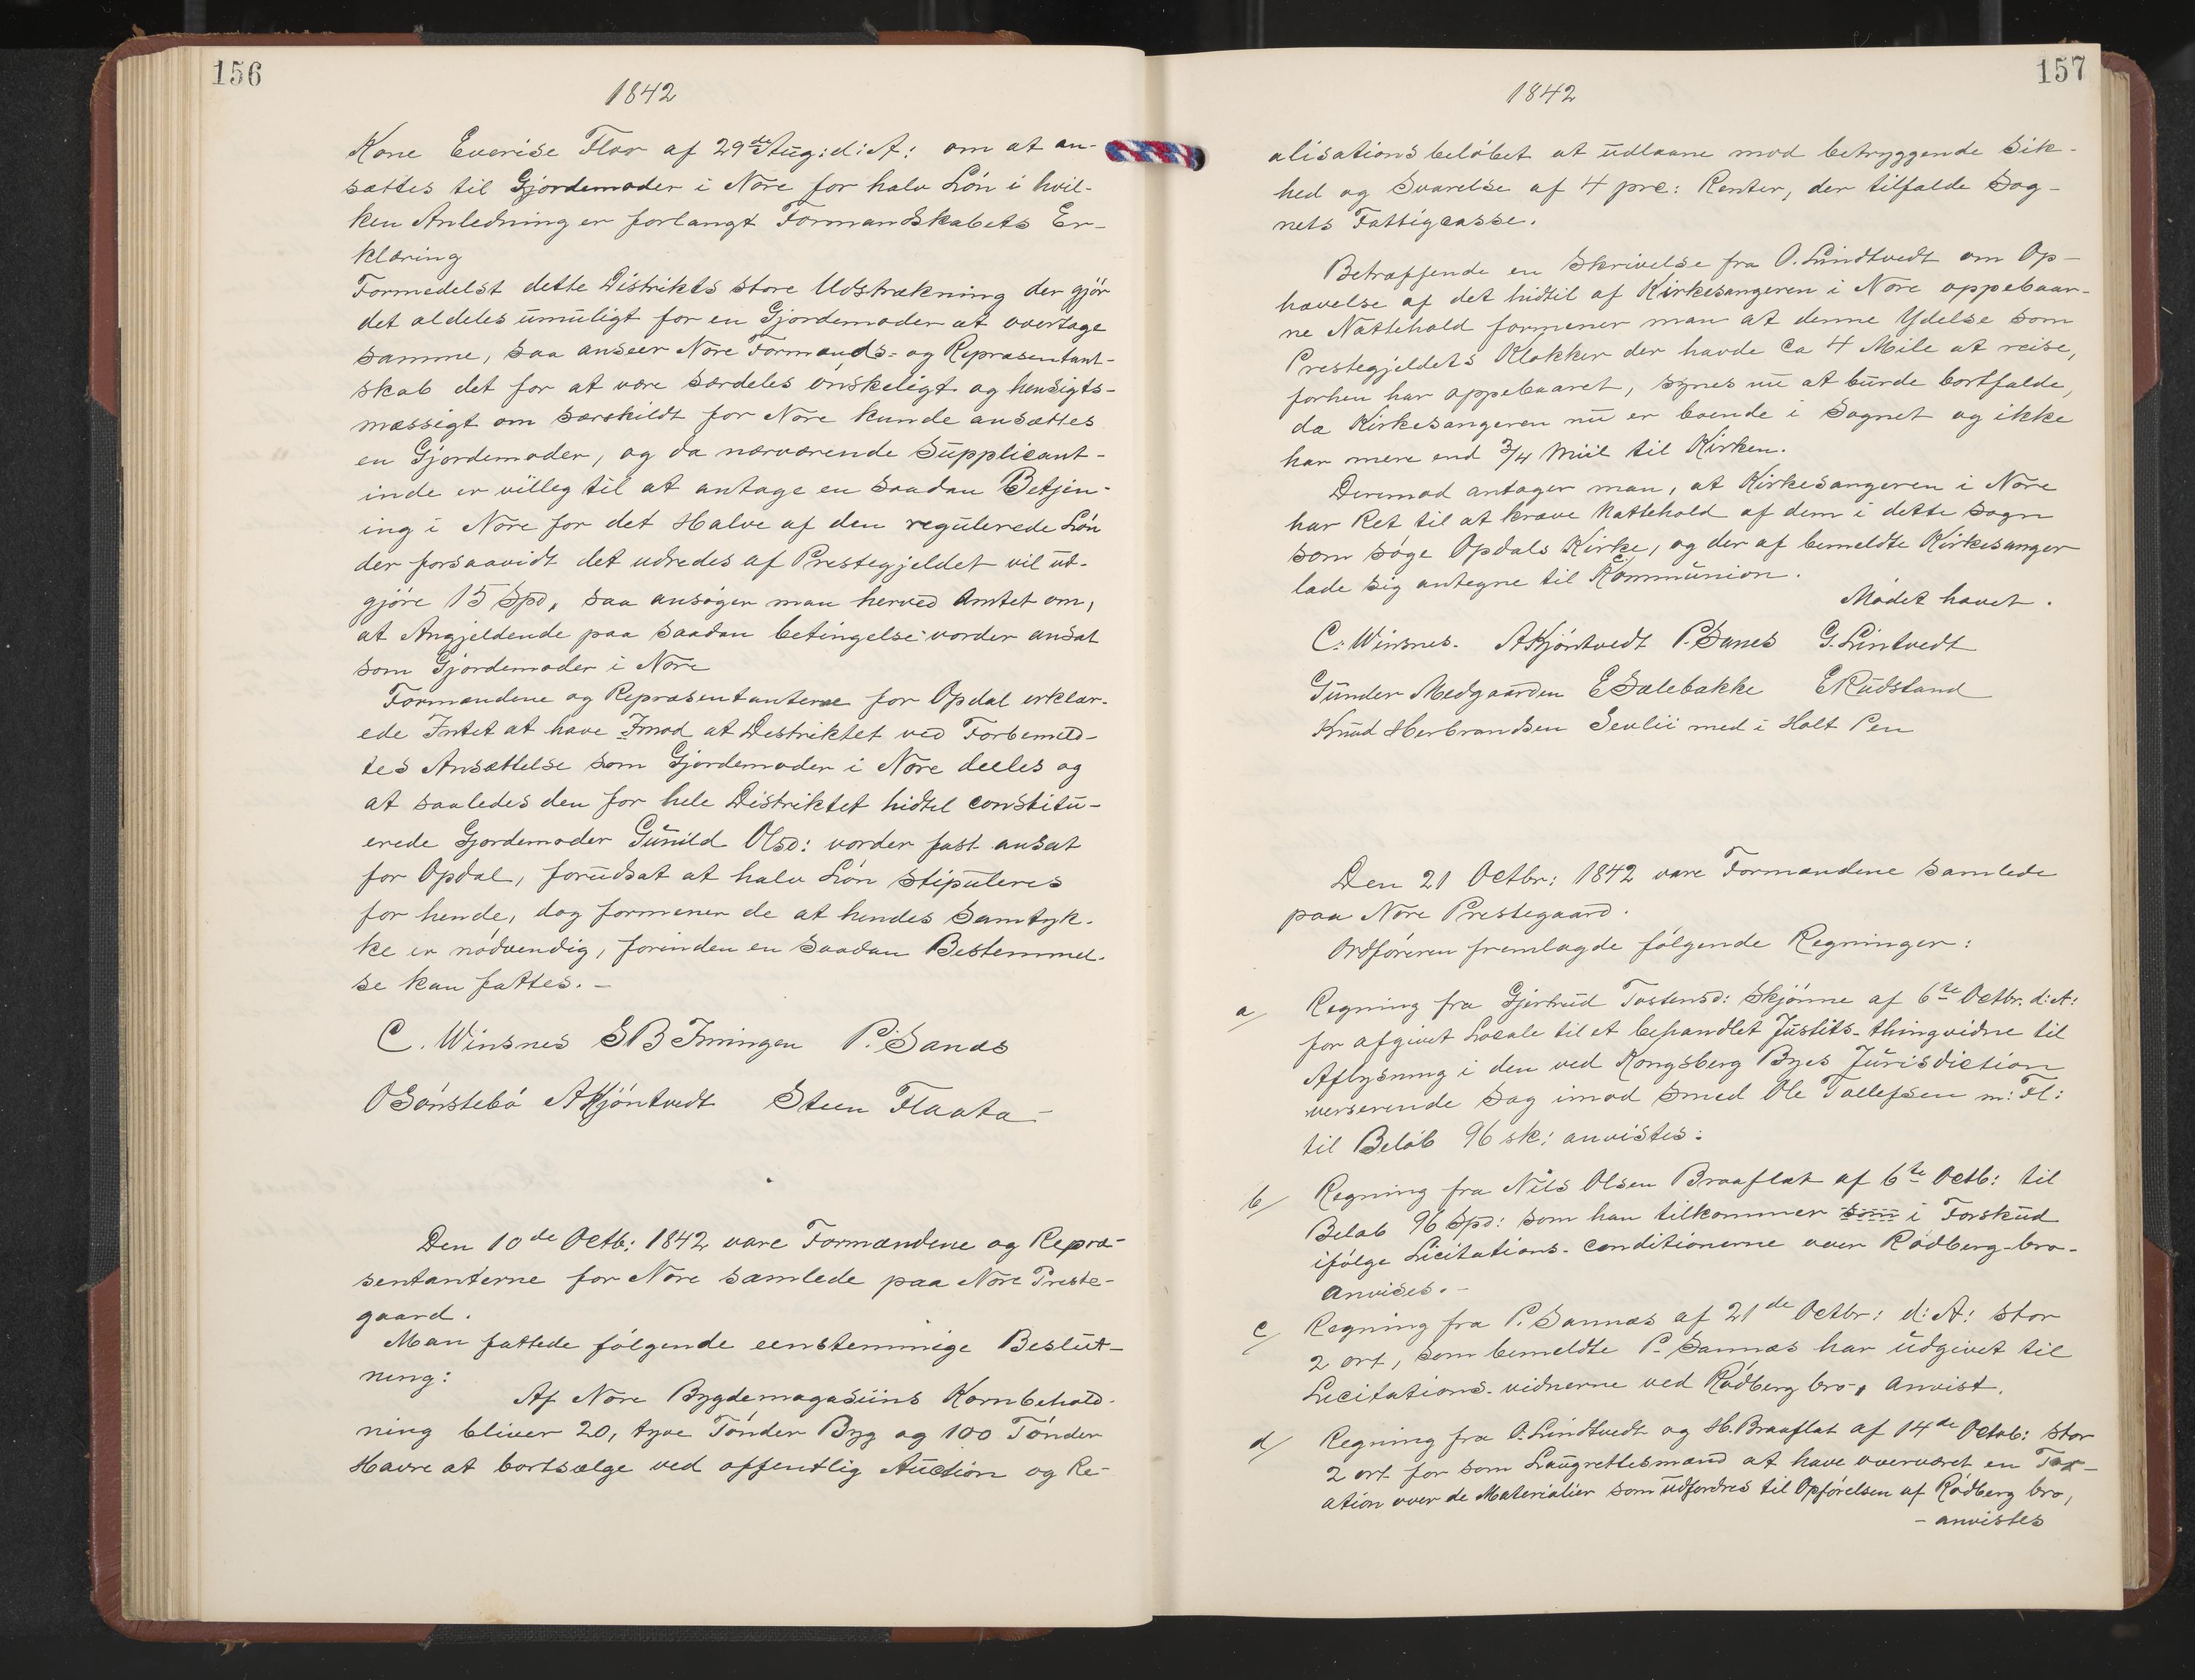 156
1842
Kone Everise Flor af 29de Aug: d: A: om at an-
sættes til Gjordemoder i Nore for halv Lön i hvil-
ken Anledning er forlangt Formandskabets Er-
klæring
Formedelst dette Distrikts store Udstrækning der gjör
det aldeles umuligt for en Gjordemoder at overtage
samme, saa anseer Nore Formands- og Repræsentant-
skab det for at være særdeles önskeligt og hensigts-
mæssigt om særskildt for Nore kunde ansættes
en Gjordemoder, og da nærværende Supplicant-
inde er villeg til at antage en saadan Betjen-
ing i Nore for det Halve af den regulerede Lön
der forsaavidt det udredes af Prestegjeldet vil ud-
gjöre 15 Spd, saa ansöger man herved Amtet om,
at Angjeldende paa saadan betingelse vorder ansat
som Gjordemoder i Nore
Formændene og Repræsentanterne for Opdal erklær-
ede Intet at have Imod at Destriktet ved Forbemeld-
tes Ansættelse som Gjordemoder i Nore deeles og
at saaledes den for hele Distriktet hidtil constitu-
erede Gjordemoder Gunild Olsd: vorder fast ansat
for Opdal, forudsat at halv Lön stipuleres
for hende, dog formener de at hendes Samtyk-
ke er nödvendig, forinden en saadan Bestemmel-
se kan fattes. -
C. Winsnes SB Imingen P. Sanas
O Sönstebö A Kjöntvedt Steen Flaata
Den 10de Octb: 1842 vare Formændene og Repræ-
sentanterne for Nore samlede paa Nore Preste-
gaard.
Man fattede fölgende eenstemmige Beslut-
ning:
Af Nore Bygdemagasiins Kornbehold-
ning bliver 20, tyve Tönder Byg og 100 Tönder
Havre at bortsælge ved offentlig Auction og Re-
157
1842
alisationsbelöbet at udlaane mod betryggende Sik-
hed og Svarelse af 4 prc: Renter, der tilfalde Sog-
nets Fattigcasse.
Betræffende en Skrivelse fra O. Lundtvedt om Op-
hævelse af det hidtil af Kirkesangeren i Nore oppebaar-
ne Nattehold formener man at denne Ydelse som
Prestegjeldets Klokker der havde ca 4 Mile at reise,
forhen har oppebaaret, synes nu at burde bortfalde,
da Kirkesangeren nu er boende i Sognet og ikke
har mere end 3/4 Miil til Kirken.
Derimod antager man, at Kirkesangeren i Nore
har Ret til at kræve Nattehold af dem i dette Sogn
som söge Opdals Kirke, og der af bemeldte Kirkesanger
lade sig antegne til Communion.
Mödet hævet.
C. Winsnes. A Kjöntvedt P. Sanes G. Lintvedt
Gunder Medgaarden E Sælebakke E Rudstand
Knud Herbrandsen Sevlii med i Holt Pen
Den 21 Octbr: 1842 vare Formændene samlede
paa Nore Prestegaard.
Ordföreren fremlagde fölgende Regninger:
a/ Regning fra Gjertrud Tostensd: Skjönne af 6te Octbr. d: A:
for afgivet Locale til et behandlet Justits-thingvidne til
Aflysning i den ved Kongsberg Byes Jurisdiction
verserende Sag imod Smed Ole Tollefsen m: Fl:
til Belöb 96 sk: anvistes:
b/ Regning fra Nils Olsen Braaflat af 6te Octb: til
Belöb 96 Spd: som han tilkommer som i Forskud
ifölge Licitations-conditionerne over Rödberg-bro-
anvises. -
c/ Regning fra P. Sannæs af 21de Octbr: d: A: stor
2 ort, som bemeldte P. Sannæs har udgivet til
Licitations-vidnerne ved Rödberg bro, anvist.
d/ Regning fra O. Lundtvedt og H. Braaflat af 14de Octob: stor
2 ort for som Laugrettesmænd at have overværet en Tax-
ation over de Materialier som udfordres til Opförelsen af Rödberg bro,
- anvistes